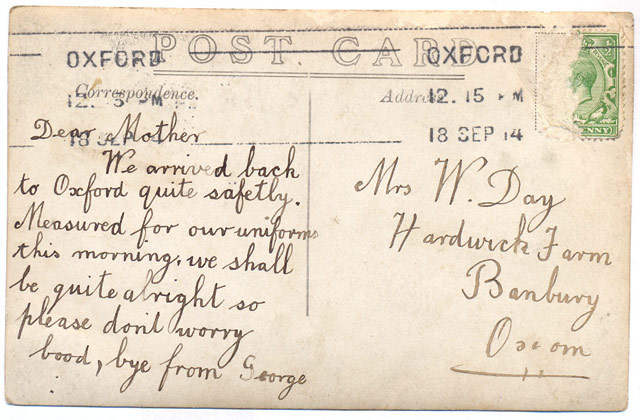 POST CARD
OXFORD
12. 15 PM
18 SEP 14
OXFORD
12. 15 PM
18 SEP 14
Correspondence.
Address
NNY
Dear Mother
We arrived back
to Oxford quite safetly.
Measured for our uniforms
this morning, we shall
be quite alright so
please don't worry
Good, bye from George
Mrs W. Day
Hardwick Farm
Banbury
Oxom